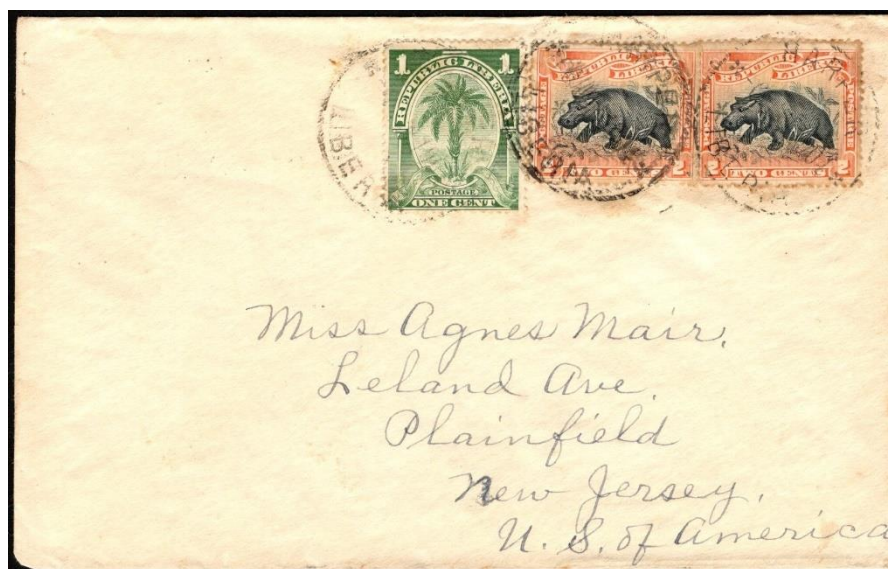 1 1
REPUBLIC LIBERIA
POSTAGE
ONE CENT
REPUBLIC
LIBERIA
2
TWO CENTS
REPUBLIC
LIBERIA
2 2
TWO CENTS
Miss Agnes Mair,
Leland Ave.
Plainfield
New Jersey.
U. S. of America